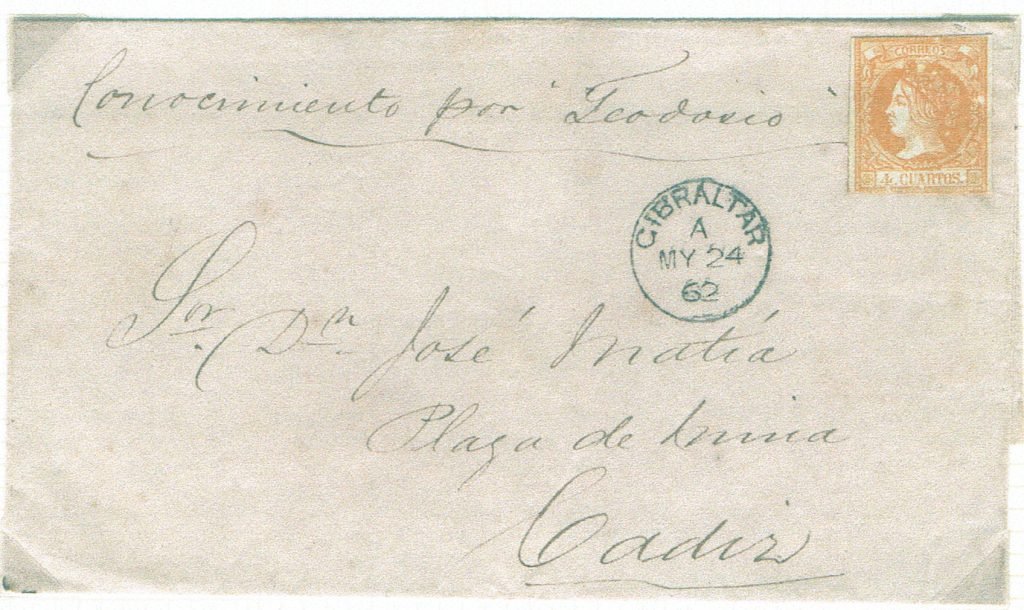 CORREOS
4 CUARTOS.
Conocimiento por "Teodosio"
GIBRALTAR
A
MY 24
62
Sor. Dn. José Matía
Plaza de Mina
Cadiz